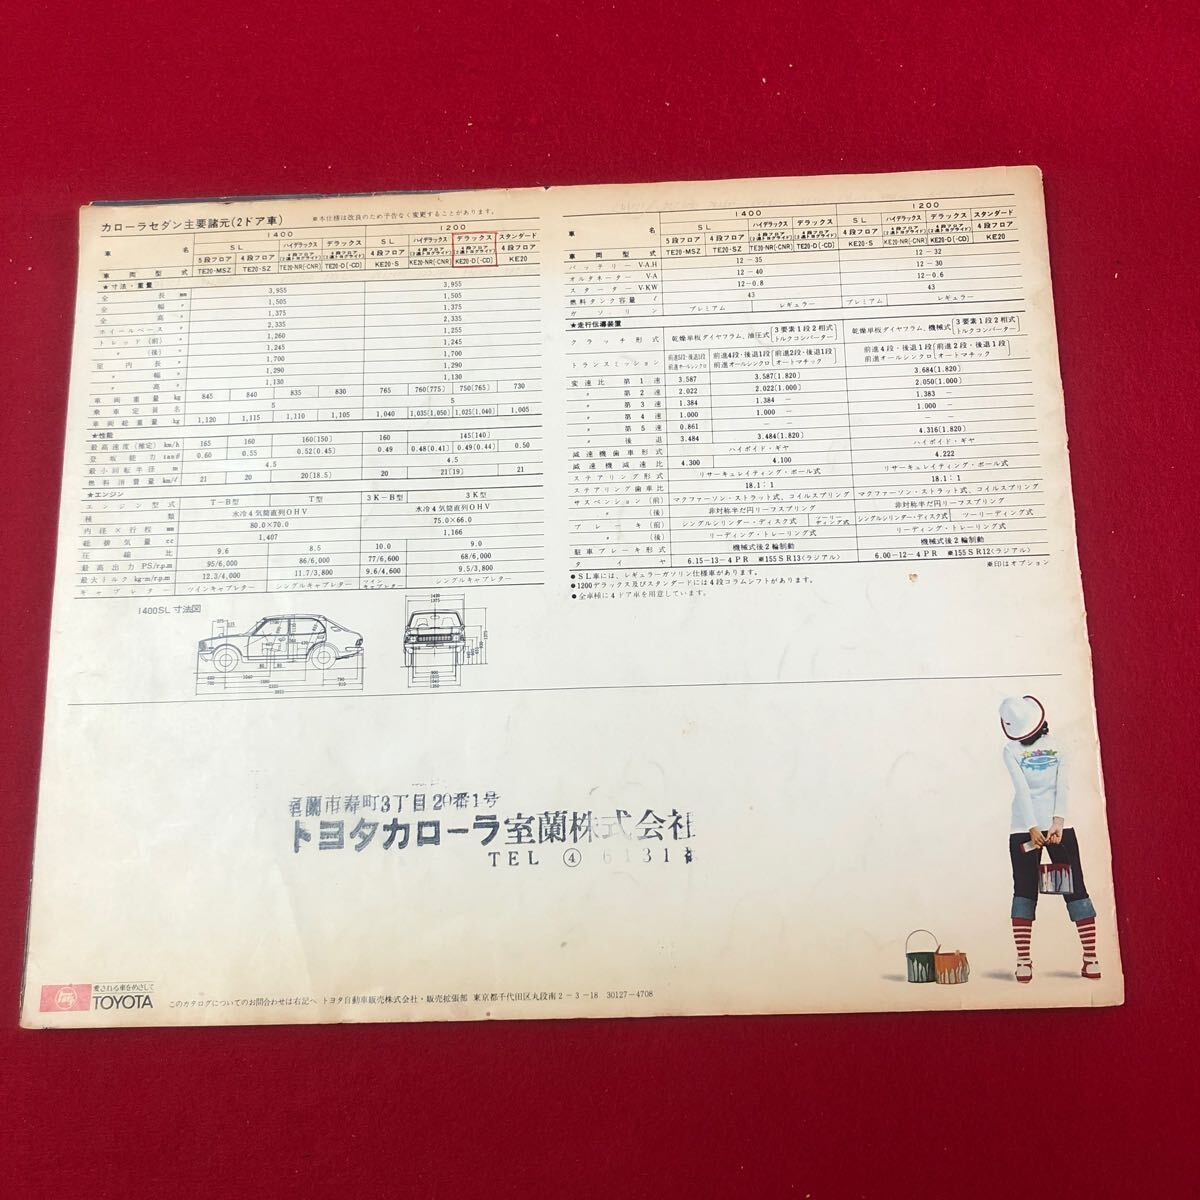 カローラセダン主要諸元(2ドア車) ※本仕様は改良のため予告なく変更することがあります。
1400 1200
車名 SL ハイデラックス デラックス SL ハイデラックス デラックス スタンダード
5段フロア 4段フロア 4段フロア(2速トヨグライド) 4段フロア(2速トヨグライド) 4段フロア 4段フロア(2速トヨグライド) 4段フロア(2速トヨグライド) 4段フロア
車両型式 TE20-MSZ TE20-SZ TE20-NR(-CNR) TE20-D(-CD) KE20-S KE20-NR(-CNR) KE20-D(-CD) KE20
★寸法・重量
全長 mm 3,955 3,955
全幅 〃 1,505 1,505
全高 〃 1,375 1,375
ホイールベース 〃 2,335 2,335
トレッド(前) 〃 1,260 1,255
〃(後) 〃 1,245 1,245
室内長 〃 1,700 1,700
〃幅 〃 1,290 1,290
〃高 〃 1,130 1,130
車両重量 kg 845 840 835 830 765 760(775) 750(765) 730
乗車定員 名 5 5
車両総重量 kg 1,120 1,115 1,110 1,105 1,040 1,035(1,050) 1,025(1,040) 1,005
★性能
最高速度(推定) km/h 165 160 160(150) 160 145(140)
登坂能力 tanθ 0.60 0.55 0.52(0.45) 0.49 0.48(0.41) 0.49(0.44) 0.50
最小回転半径 m 4.5 4.5
燃料消費量 km/ℓ 21 20 20(18.5) 21 21(19) 21
★エンジン
エンジン型式 T-B型 T型 3K-B型 3K型
種類 水冷4気筒直列OHV 水冷4気筒直列OHV
内径×行程 mm 80.0×70.0 75.0×66.0
総排気量 cc 1,407 1,166
圧縮比 9.6 8.5 10.0 9.0
最高出力 PS/r.p.m 95/6,000 86/6,000 77/6,600 68/6,000
最大トルク kg-m/r.p.m 12.3/4,000 11.7/3,800 9.6/4,600 9.5/3,800
キャブレター ツインキャブレター シングルキャブレター ツインキャブレター シングルキャブレター
1400SL寸法図
1400 1200
車名 SL ハイデラックス デラックス SL ハイデラックス デラックス スタンダード
5段フロア 4段フロア 4段フロア(2速トヨグライド) 4段フロア(2速トヨグライド) 4段フロア 4段フロア(2速トヨグライド) 4段フロア(2速トヨグライド) 4段フロア
車両型式 TE20-MSZ TE20-SZ TE20-NR(-CNR) TE20-D(-CD) KE20-S KE20-NR(-CNR) KE20-D(-CD) KE20
バッテリー V-A.H 12-35 12-32
オルタネーター V-A 12-40 12-30
スターター V-KW 12-0.8 12-0.6
燃料タンク容量 ℓ 43 43
ガソリン プレミアム レギュラー プレミアム レギュラー
★走行伝導装置
クラッチ形式 乾燥単板ダイヤフラム、油圧式(3要素1段2相式トルクコンバーター) 乾燥単板ダイヤフラム、機械式(3要素1段2相式トルクコンバーター)
トランスミッション 前進5段・後退1段前進オールシンクロ 前進4段・後退1段前進オールシンクロ(前進2段・後退1段オートマチック) 前進4段・後退1段前進オールシンクロ(前進2段・後退1段オートマチック)
変速比 第1速 3.587 3.587(1.820) 3.684(1.820)
〃 第2速 2.022 2.022(1.000) 2.050(1.000)
〃 第3速 1.384 1.384 - 1.383 -
〃 第4速 1.000 1.000 - 1.000 -
〃 第5速 0.861 - - - -
〃 後退 3.484 3.484(1.820) 4.316(1.820)
減速機歯車形式 ハイポイド・ギヤ ハイポイド・ギヤ
減速機減速比 4.300 4.100 4.222
ステアリング形式 リサーキュレイティング・ボール式 リサーキュレイティング・ボール式
ステアリング歯車比 18.1:1 18.1:1
サスペンション(前) マクファーソン・ストラット式、コイルスプリング マクファーソン・ストラット式、コイルスプリング
〃(後) 非対称半だ円リーフスプリング 非対称半だ円リーフスプリング
ブレーキ(前) シングルシリンダー・ディスク式 ツーリーディング式 シングルシリンダー・ディスク式 ツーリーディング式
〃(後) リーディング・トレーリング式 リーディング・トレーリング式
駐車ブレーキ形式 機械式後2輪制動 機械式後2輪制動
タイヤ 6.15-13-4PR ※155SR13(ラジアル) 6.00-12-4PR ※155SR12(ラジアル)
※印はオプション
●SL車には、レギュラーガソリン仕様車があります。
●1200デラックス及びスタンダードには4段コラムシフトがあります。
●全車種に4ドア車を用意しています。
室蘭市寿町3丁目20番1号
トヨタカローラ室蘭株式会社
TEL ④ 6131
愛される車をめざして
TOYOTA
このカタログについてのお問合わせは右記へ トヨタ自動車販売株式会社・販売拡張部 東京都千代田区九段南2-3-18 30127-4708